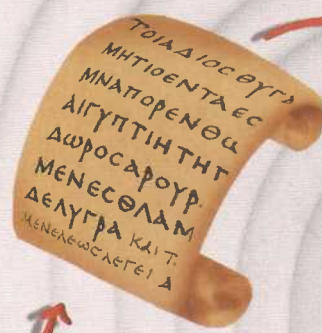 ΤΟΙΑΔΙΟCΘΥΓΑ
ΜΗΤΙΟΕΝΤΑΕC
ΜΝΑΠΟΡΕΝΘΩ
ΑΙΓΥΠΤΙΗΤΗΤ
ΔΩΡΟCΑΡΟΥΡ.
ΜΕΝΕCΘΛΑΜ
ΔΕΛΥΓΡΑ ΚΑΙ Τ.
ΜΕΝΕΛΕΩCΛΕΓΕΙ Δ